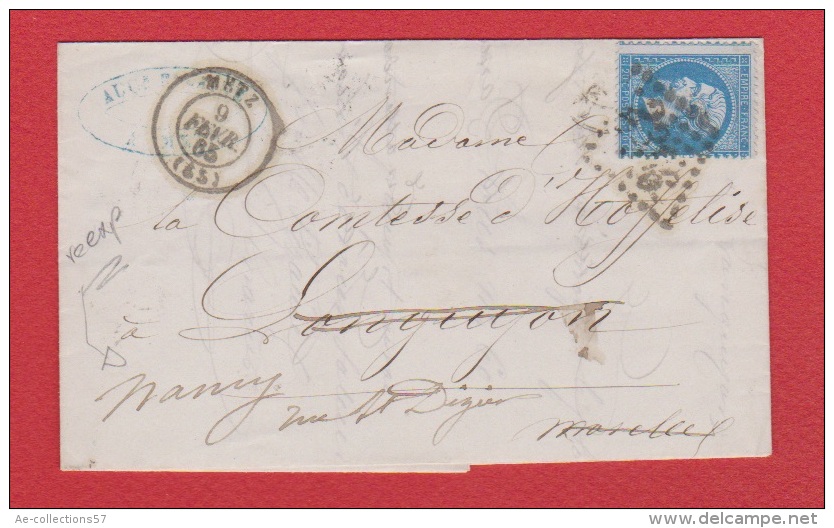 METZ
9
FEVR
65
(55)
EMPIRE FRANC
Madame
la Comtesse d'Hoffelize
à Longuyon
Nancy
rue St Dizier
Moselle
reexp
Ae-collections57
www.delcampe.net